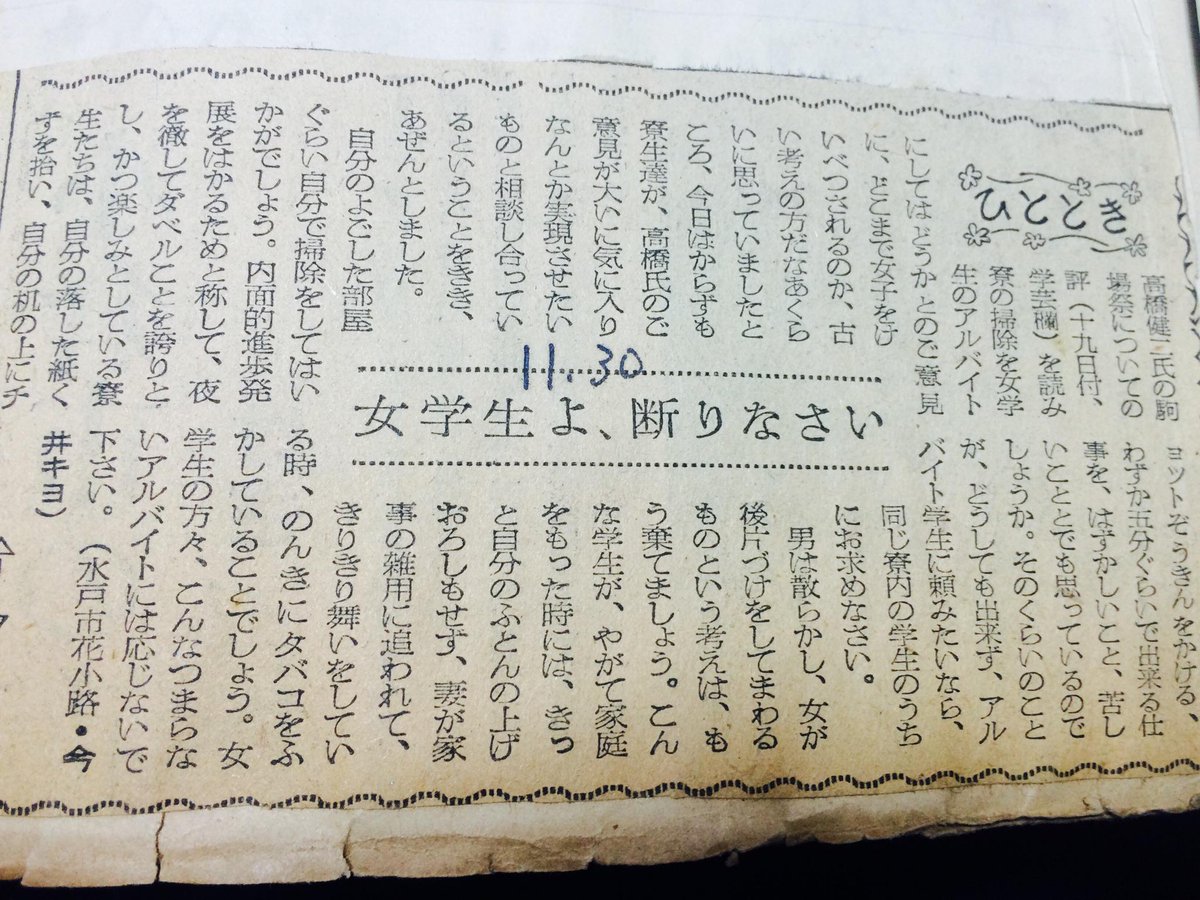 ひととき
11.30
女学生よ、断りなさい
高橋健二氏の駒
場祭についての
評（十九日付、
学芸欄）を読み
寮の掃除を女学
生のアルバイト
にしてはどうかとのご意見
に、どこまで女子をけ
いべつされるのか、古
い考えの方だなあくら
いに思っていましたと
ころ、今日はからずも
寮生達が、高橋氏のご
意見が大いに気に入り
なんとか実現させたい
ものと相談し合ってい
るということをきき、
あぜんとしました。
自分のよごした部屋
ぐらい自分で掃除をしてはい
かがでしょう。内面的進歩発
展をはかるためと称して、夜
を徹してダベルことを誇りと
し、かつ楽しみとしている寮
生たちは、自分の落した紙く
ずを拾い、自分の机の上にチ
ョットぞうきんをかける、
わずか五分ぐらいで出来る仕
事を、はずかしいこと、苦し
いこととでも思っているので
しょうか。そのくらいのこと
が、どうしても出来ず、アル
バイト学生に頼みたいなら、
同じ寮内の学生のうち
にお求めなさい。
男は散らかし、女が
後片づけをしてまわる
ものという考えは、も
う棄てましょう。こん
な学生が、やがて家庭
をもった時には、きっ
と自分のふとんの上げ
おろしもせず、妻が家
事の雑用に追われて、
きりきり舞いをしてい
る時、のんきにタバコをふ
かしていることでしょう。女
学生の方々、こんなつまらな
いアルバイトには応じないで
下さい。（水戸市花小路・今
井キヨ）